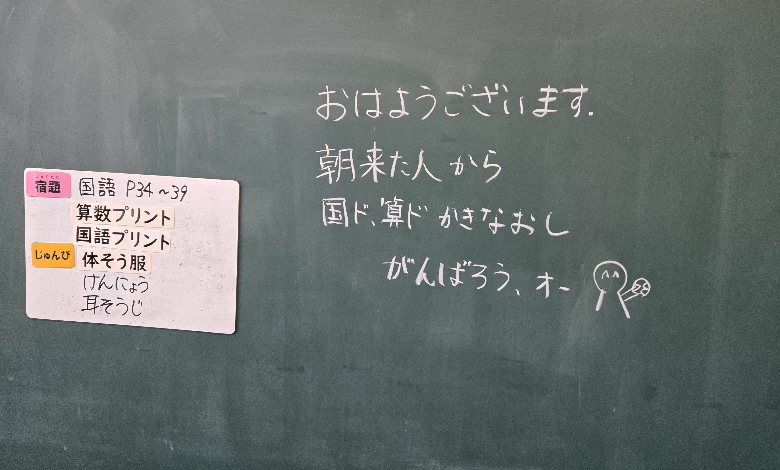 宿題 国語 P34〜39
算数プリント
国語プリント
じゅんび 体そう服
けんにょう
耳そうじ
おはようございます.
朝来た人から
国ド、算ド かきなおし
がんばろう、オー